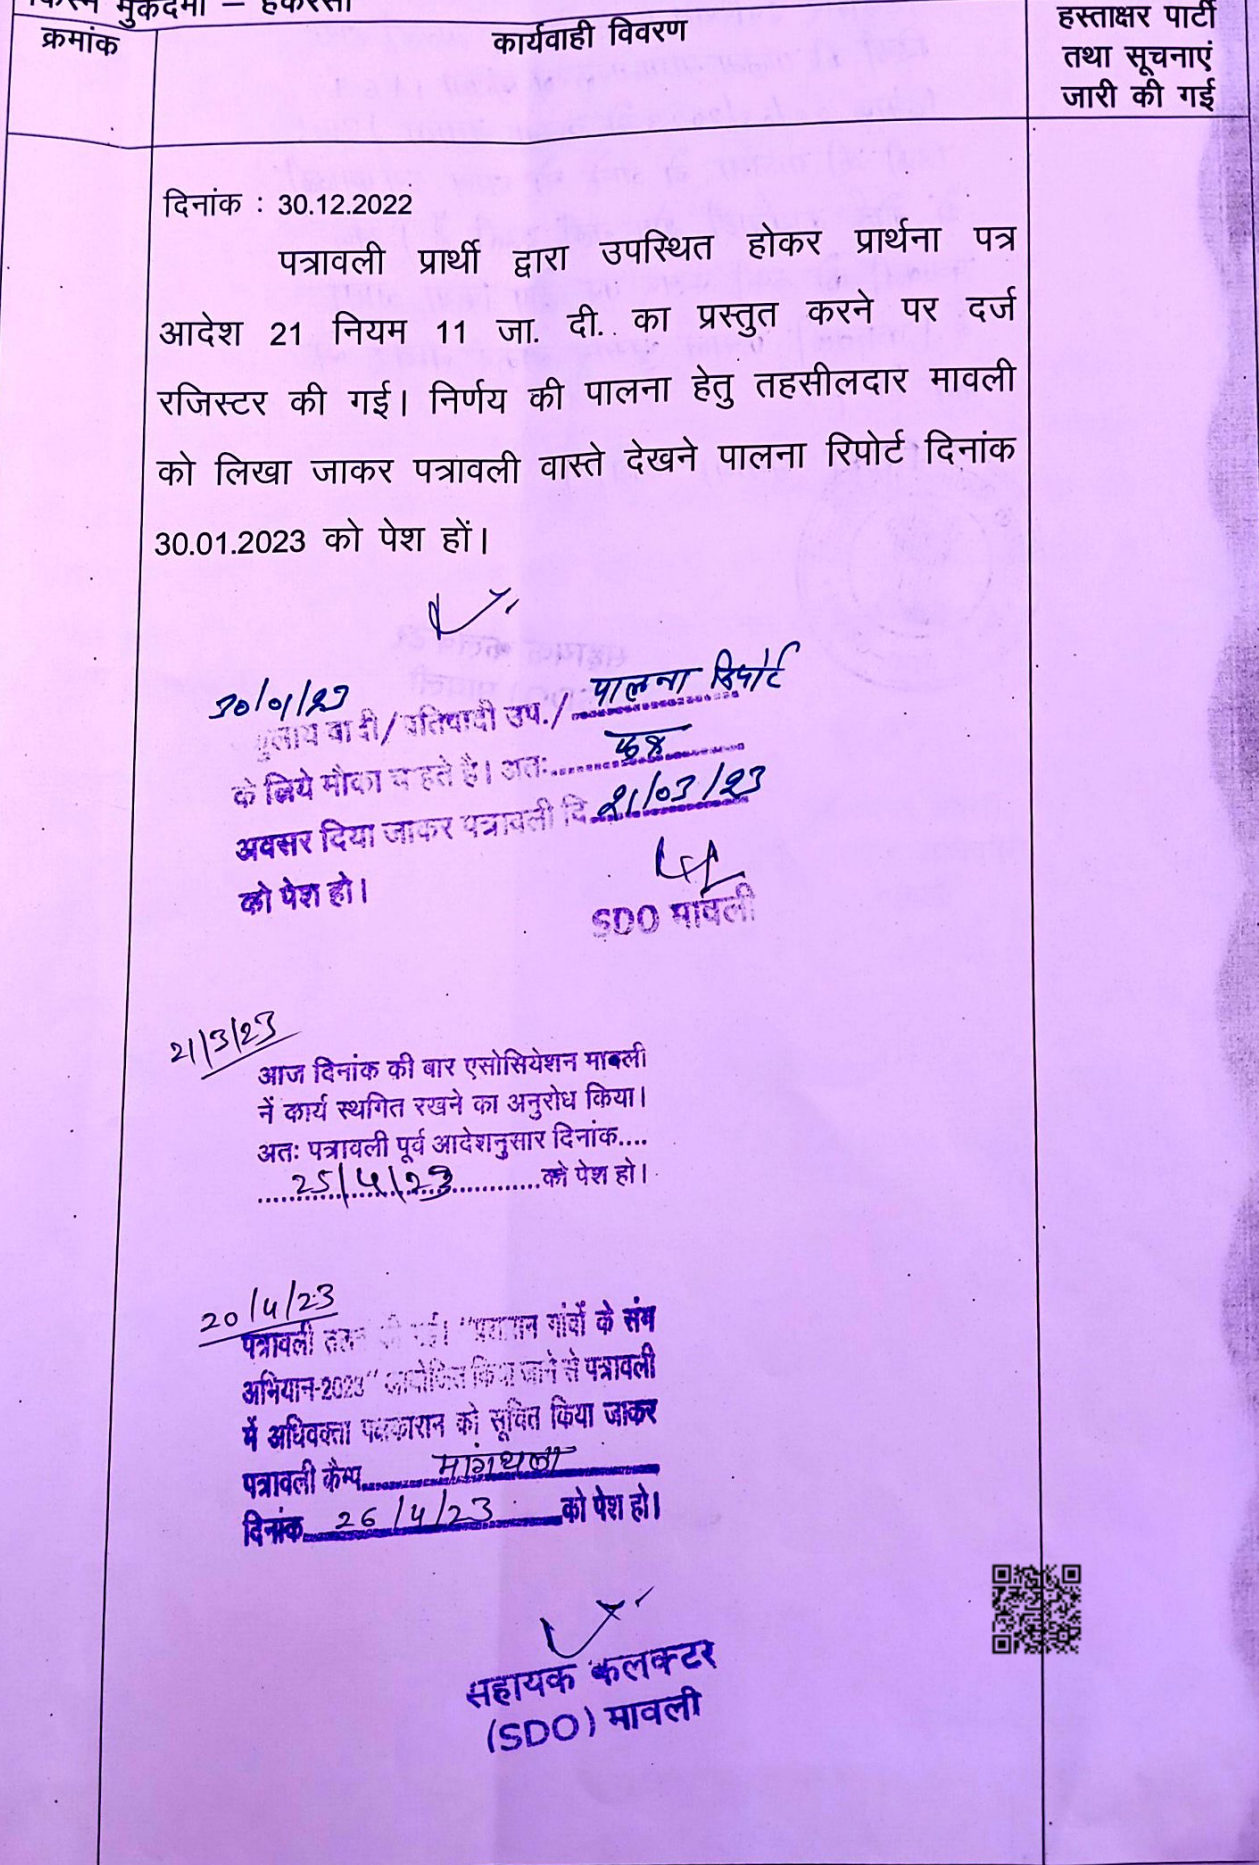 किस्म मुकदमा – हकरसी
क्रमांक
कार्यवाही विवरण
हस्ताक्षर पार्टी
तथा सूचनाएं
जारी की गई
दिनांक : 30.12.2022
पत्रावली प्रार्थी द्वारा उपस्थित होकर प्रार्थना पत्र
आदेश 21 नियम 11 जा. दी. का प्रस्तुत करने पर दर्ज
रजिस्टर की गई। निर्णय की पालना हेतु तहसीलदार मावली
को लिखा जाकर पत्रावली वास्ते देखने पालना रिपोर्ट दिनांक
30.01.2023 को पेश हों।
30/01/23
वादी/प्रतिवादी उप./ पालना रिपोर्ट
के लिये मौका चहते है। अतः
अवसर दिया जाकर पत्रावली दि. 21/03/23
को पेश हो।
SDO मावली
21/3/23
आज दिनांक की बार एसोसियेशन मावली
नें कार्य स्थगित रखने का अनुरोध किया।
अतः पत्रावली पूर्व आदेशनुसार दिनांक....
25/4/23 को पेश हो।
20/4/23
पत्रावली गई। "प्रशासन गांवों के संग
अभियान-2023" आयोजित किया जाने से पत्रावली
में अधिवक्ता पक्षकारान को सूचित किया जाकर
पत्रावली कैम्प मांगथला
दिनांक 26/4/23 को पेश हो।
सहायक कलक्टर
(SDO) मावली